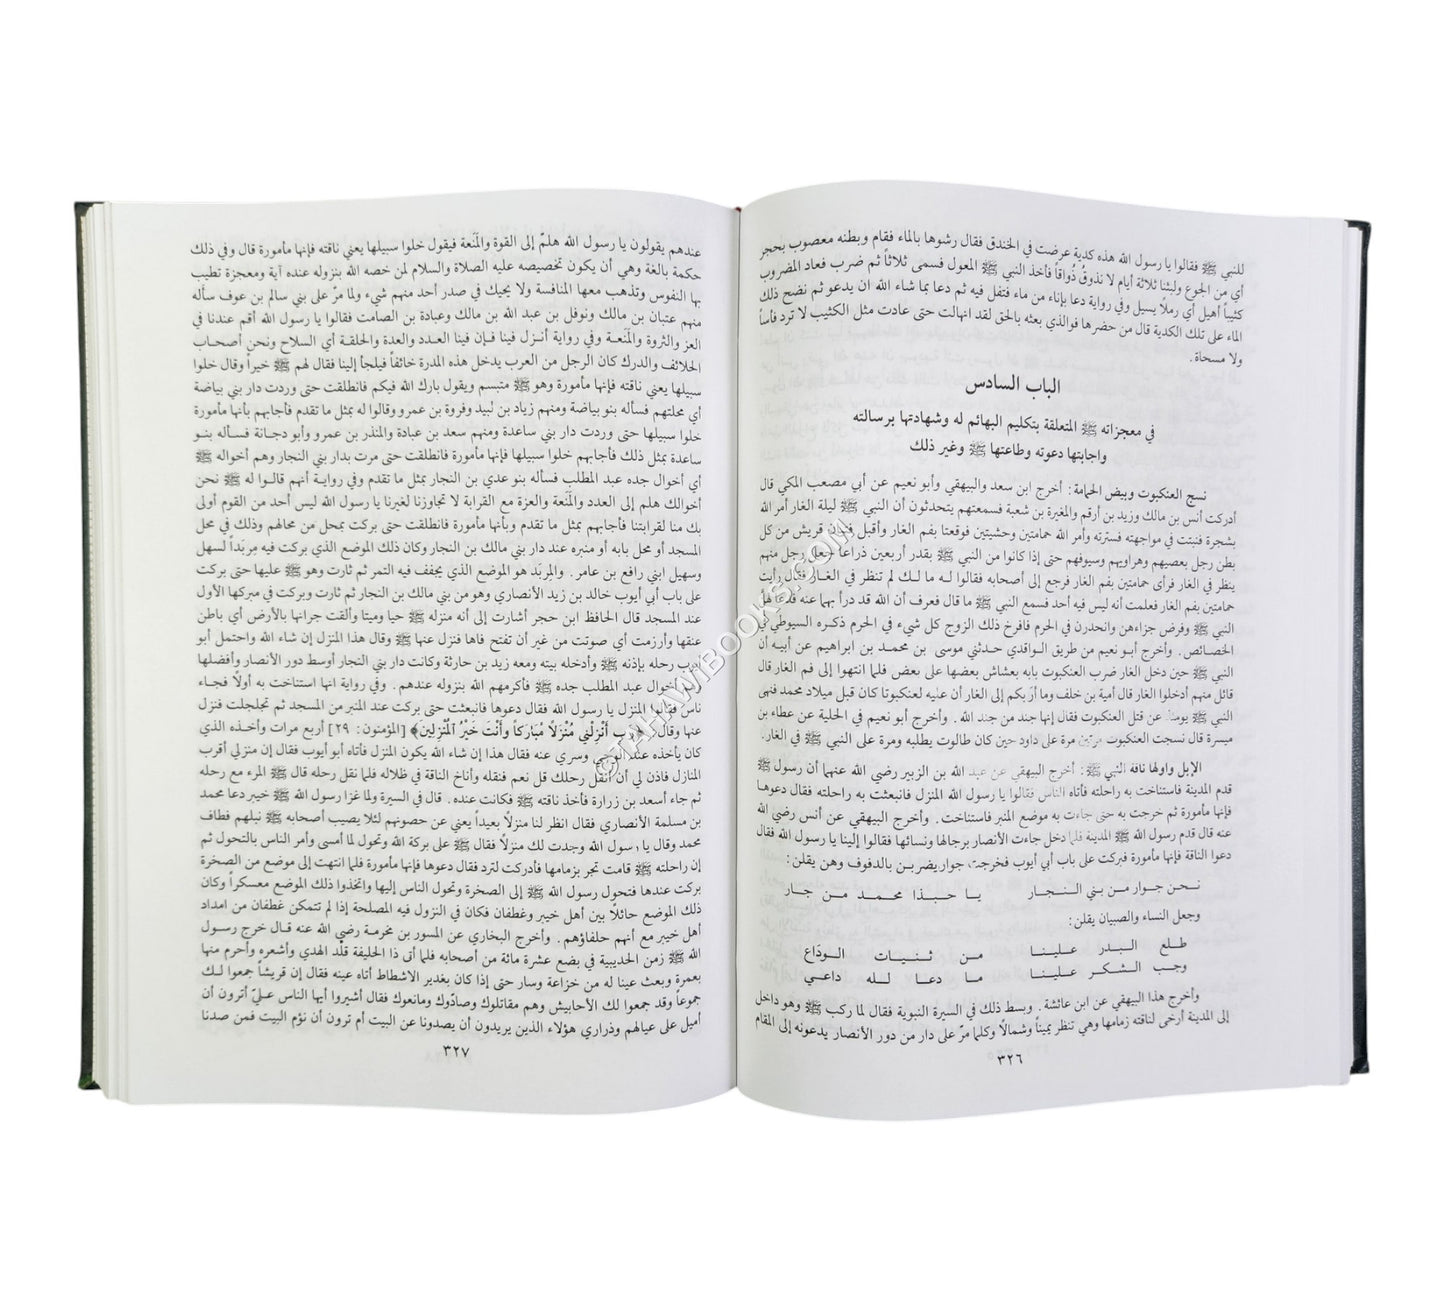 للنبي ﷺ فقالوا يا رسول الله هذه كدية عرضت في الخندق فقال رشوها بالماء فقام وبطنه معصوب بحجر
أي من الجوع ولبثنا ثلاثة أيام لا نذوقُ ذُواقاً فأخذ النبي ﷺ المعول فسمى ثلاثاً ثم ضرب فعاد المضروب
كثيباً أهيل أي رملاً يسيل وفي رواية دعا بإناء من ماء فتفل فيه ثم دعا بما شاء الله ان يدعو ثم نضح ذلك
الماء على تلك الكدية قال من حضرها فوالذي بعثه بالحق لقد انهالت حتى عادت مثل الكثيب لا ترد فأساً
ولا مسحاة.
الباب السادس
في معجزاته ﷺ المتعلقة بتكليم البهائم له وشهادتها برسالته
واجابتها دعوته وطاعتها ﷺ وغير ذلك
نسج العنكبوت وبيض الحمامة: أخرج ابن سعد والبيهقي وأبو نعيم عن أبي مصعب المكي قال
أدركت أنس بن مالك وزيد بن أرقم والمغيرة بن شعبة فسمعتهم يتحدثون أن النبي ﷺ ليلة الغار أمر الله
بشجرة فنبتت في مواجهته فسترته وأمر الله حمامتين وحشيتين فوقعتا بفم الغار وأقبل فتيان قريش من كل
بطن رجل بعصيهم وهراويهم وسيوفهم حتى إذا كانوا من النبي ﷺ بقدر أربعين ذراعاً جعل رجل منهم
ينظر في الغار فرأى حمامتين بفم الغار فرجع إلى أصحابه فقالوا له ما لك لم تنظر في الغار فقال رأيت
حمامتين بفم الغار فعلمت أنه ليس فيه أحد فسمع النبي ﷺ ما قال فعرف أن الله قد درأ بهما عنه فدعا لهما
النبي ﷺ وفرض جزاءهن وانحدرن في الحرم فافرخ ذلك الزوج كل شيء في الحرم ذكره السيوطي في
الخصائص. وأخرج أبو نعيم من طريق الواقدي حدثني موسى بن محمد بن ابراهيم عن أبيه أن
النبي ﷺ حين دخل الغار ضرب العنكبوت بابه بعشاش بعضها على بعض فلما انتهوا إلى فم الغار قال
قائل منهم أدخلوا الغار قال أمية بن خلف وما أرَبكم إلى الغار أن عليه لعنكبوتا كان قبل ميلاد محمد فنهى
النبي ﷺ يومئذ عن قتل العنكبوت فقال إنها جند من جند الله. وأخرج أبو نعيم في الحلية عن عطاء بن
ميسرة قال نسجت العنكبوت مرتين مرة على داود حين كان طالوت يطلبه ومرة على النبي ﷺ في الغار.
الإبل واولها ناقة النبي ﷺ: أخرج البيهقي عن عبد الله بن الزبير رضي الله عنهما أن رسول ﷺ
قدم المدينة فاستناخت به راحلته فأتاه الناس فقالوا يا رسول الله المنزل فانبعثت به راحلته فقال دعوها
فإنها مأمورة ثم خرجت به حتى جاءت به موضع المنبر فاستناخت. وأخرج البيهقي عن أنس رضي الله
عنه قال قدم رسول الله ﷺ المدينة فلما دخل جاءت الأنصار برجالها ونسائها فقالوا إلينا يا رسول الله فقال
دعوا الناقة فإنها مأمورة فبركت على باب أبي أيوب فخرجت جوار يضربن بالدفوف وهن يقلن:
نحن جوار من بني النجار يا حبذا محمد من جار
وجعل النساء والصبيان يقلن:
طلع البدر علينا من ثنيات الوداع
وجب الشكر علينا ما دعا لله داعي
وأخرج هذا البيهقي عن ابن عائشة. وبسط ذلك في السيرة النبوية فقال لما ركب ﷺ وهو داخل
إلى المدينة أرخى لناقته زمامها وهي تنظر يميناً وشمالاً وكلما مرّ على دار من دور الأنصار يدعونه إلى المقام
٣٢٦
عندهم يقولون يا رسول الله هلمّ إلى القوة والمَنَعة فيقول خلوا سبيلها يعني ناقته فإنها مأمورة قال وفي ذلك
حكمة بالغة وهي أن يكون تخصيصه عليه الصلاة والسلام لمن خصه الله بنزوله عنده آية ومعجزة تطيب
بها النفوس وتذهب معها المنافسة ولا يحيك في صدر أحد منهم شيء ولما مرّ على بني سالم بن عوف سأله
منهم عتبان بن مالك ونوفل بن عبد الله بن مالك وعبادة بن الصامت فقالوا يا رسول الله أقم عندنا في
العز والثروة والمَنَعة وفي رواية أنزل فينا فإن فينا العدد والعدة والحلقة أي السلاح ونحن أصحاب
الحلائف والدرك كان الرجل من العرب يدخل هذه المدرة خائفاً فيلجأ إلينا فقال لهم ﷺ خيراً وقال خلوا
سبيلها يعني ناقته فإنها مأمورة وهو ﷺ متبسم ويقول بارك الله فيكم فانطلقت حتى وردت دار بني بياضة
أي محلتهم فسأله بنو بياضة ومنهم زياد بن لبيد وفروة بن عمرو وقالوا له بمثل ما تقدم فأجابهم بأنها مأمورة
خلوا سبيلها حتى وردت دار بني ساعدة ومنهم سعد بن عبادة والمنذر بن عمرو وأبو دجانة فسأله بنو
ساعدة بمثل ذلك فأجابهم خلوا سبيلها فإنها مأمورة فانطلقت حتى مرت بدار بني النجار وهم أخواله ﷺ
أي أخوال جده عبد المطلب فسأله بنو عدي بن النجار بمثل ما تقدم وفي رواية أنهم قالوا له ﷺ نحن
أخوالك هلم إلى العدد والمَنَعة والعزة مع القرابة لا تجاوزنا لغيرنا يا رسول الله ليس أحد من القوم أولى
بك منا لقرابتنا فأجابهم بمثل ما تقدم وبأنها مأمورة فانطلقت حتى بركت بمحل من محالهم وذلك في محل
المسجد أو محل بابه أو منبره عند دار بني مالك بن النجار وكان ذلك الموضع الذي بركت فيه مربَداً لسهل
وسهيل ابني رافع بن عامر. والمِربَد هو الموضع الذي يجفف فيه التمر ثم ثارت وهو ﷺ عليها حتى بركت
على باب أبي أيوب خالد بن زيد الأنصاري وهو من بني مالك بن النجار ثم ثارت وبركت في مبركها الأول
عند المسجد قال الحافظ ابن حجر أشارت إلى أنه منزله ﷺ حيا وميتا وألقت جرانها بالأرض أي باطن
عنقها وأرزمت أي صوتت من غير أن تفتح فاها فنزل عنها ﷺ وقال هذا المنزل إن شاء الله واحتمل أبو
أيوب رحله بإذنه ﷺ وأدخله بيته ومعه زيد بن حارثة وكانت دار بني النجار أوسط دور الأنصار وأفضلها
وهم أخوال عبد المطلب جده ﷺ فأكرمهم الله بنزوله عندهم. وفي رواية انها استناخت به أولاً فجاء
ناس فقالوا المنزل يا رسول الله فقال دعوها فانبعثت حتى بركت عند المنبر من المسجد ثم تجلجلت فنزل
عنها وقال ﴿رب أَنْزِلْنِي مُنْزَلاً مُبَارَكاً وأَنْتَ خَيْرُ المُنْزِلِينَ﴾ [المؤمنون: ٢٩] أربع مرات وأخذه الذي
كان يأخذه عند الوحي وسري عنه فقال هذا إن شاء الله يكون المنزل فأتاه أبو أيوب فقال إن منزلي أقرب
المنازل فاذن لي أن أنقل رحلك قال نعم فنقله وأناخ الناقة في ظلاله فلما نقل رحله قال ﷺ المرء مع رحله
ثم جاء أسعد بن زرارة فأخذ ناقته ﷺ فكانت عنده. قال في السيرة ولما غزا رسول الله ﷺ خيبر دعا محمد
بن مسلمة الأنصاري فقال انظر لنا منزلاً بعيداً يعني عن حصونهم لئلا يصيب أصحابه ﷺ نيلهم فطاف
محمد وقال يا رسول الله وجدت لك منزلاً فقال ﷺ على بركة الله وتحول لما أمسى وأمر الناس بالتحول ثم
إن راحلته ﷺ قامت تجر بزمامها فأدركت لترد فقال دعوها فإنها مأمورة فلما انتهت إلى موضع من الصخرة
بركت عندها فتحول رسول الله ﷺ إلى الصخرة وتحول الناس إليها واتخذوا ذلك الموضع معسكراً وكان
ذلك الموضع حائلاً بين أهل خيبر وغطفان فكان في النزول فيه المصلحة إذا لم تتمكن غطفان من امداد
أهل خيبر مع أنهم حلفاؤهم. وأخرج البخاري عن المسور بن مخرمة رضي الله عنه قال خرج رسول
الله ﷺ زمن الحديبية في بضع عشرة مائة من أصحابه فلما أتى ذا الحليفة قلّد الهدي وأشعره وأحرم منها
بعمرة وبعث عينا له من خزاعة وسار حتى إذا كان بغدير الاشطاط أتاه عينه فقال إن قريشاً جمعوا لك
جموعاً وقد جمعوا لك الأحابيش وهم مقاتلوك وصادّوك ومانعوك فقال أشيروا أيها الناس عليّ أترون أن
أميل على عيالهم وذراري هؤلاء الذين يريدون أن يصدونا عن البيت أم ترون أن نؤم البيت فمن صدنا
٣٢٧
©TAHAWIBOOKS.COM